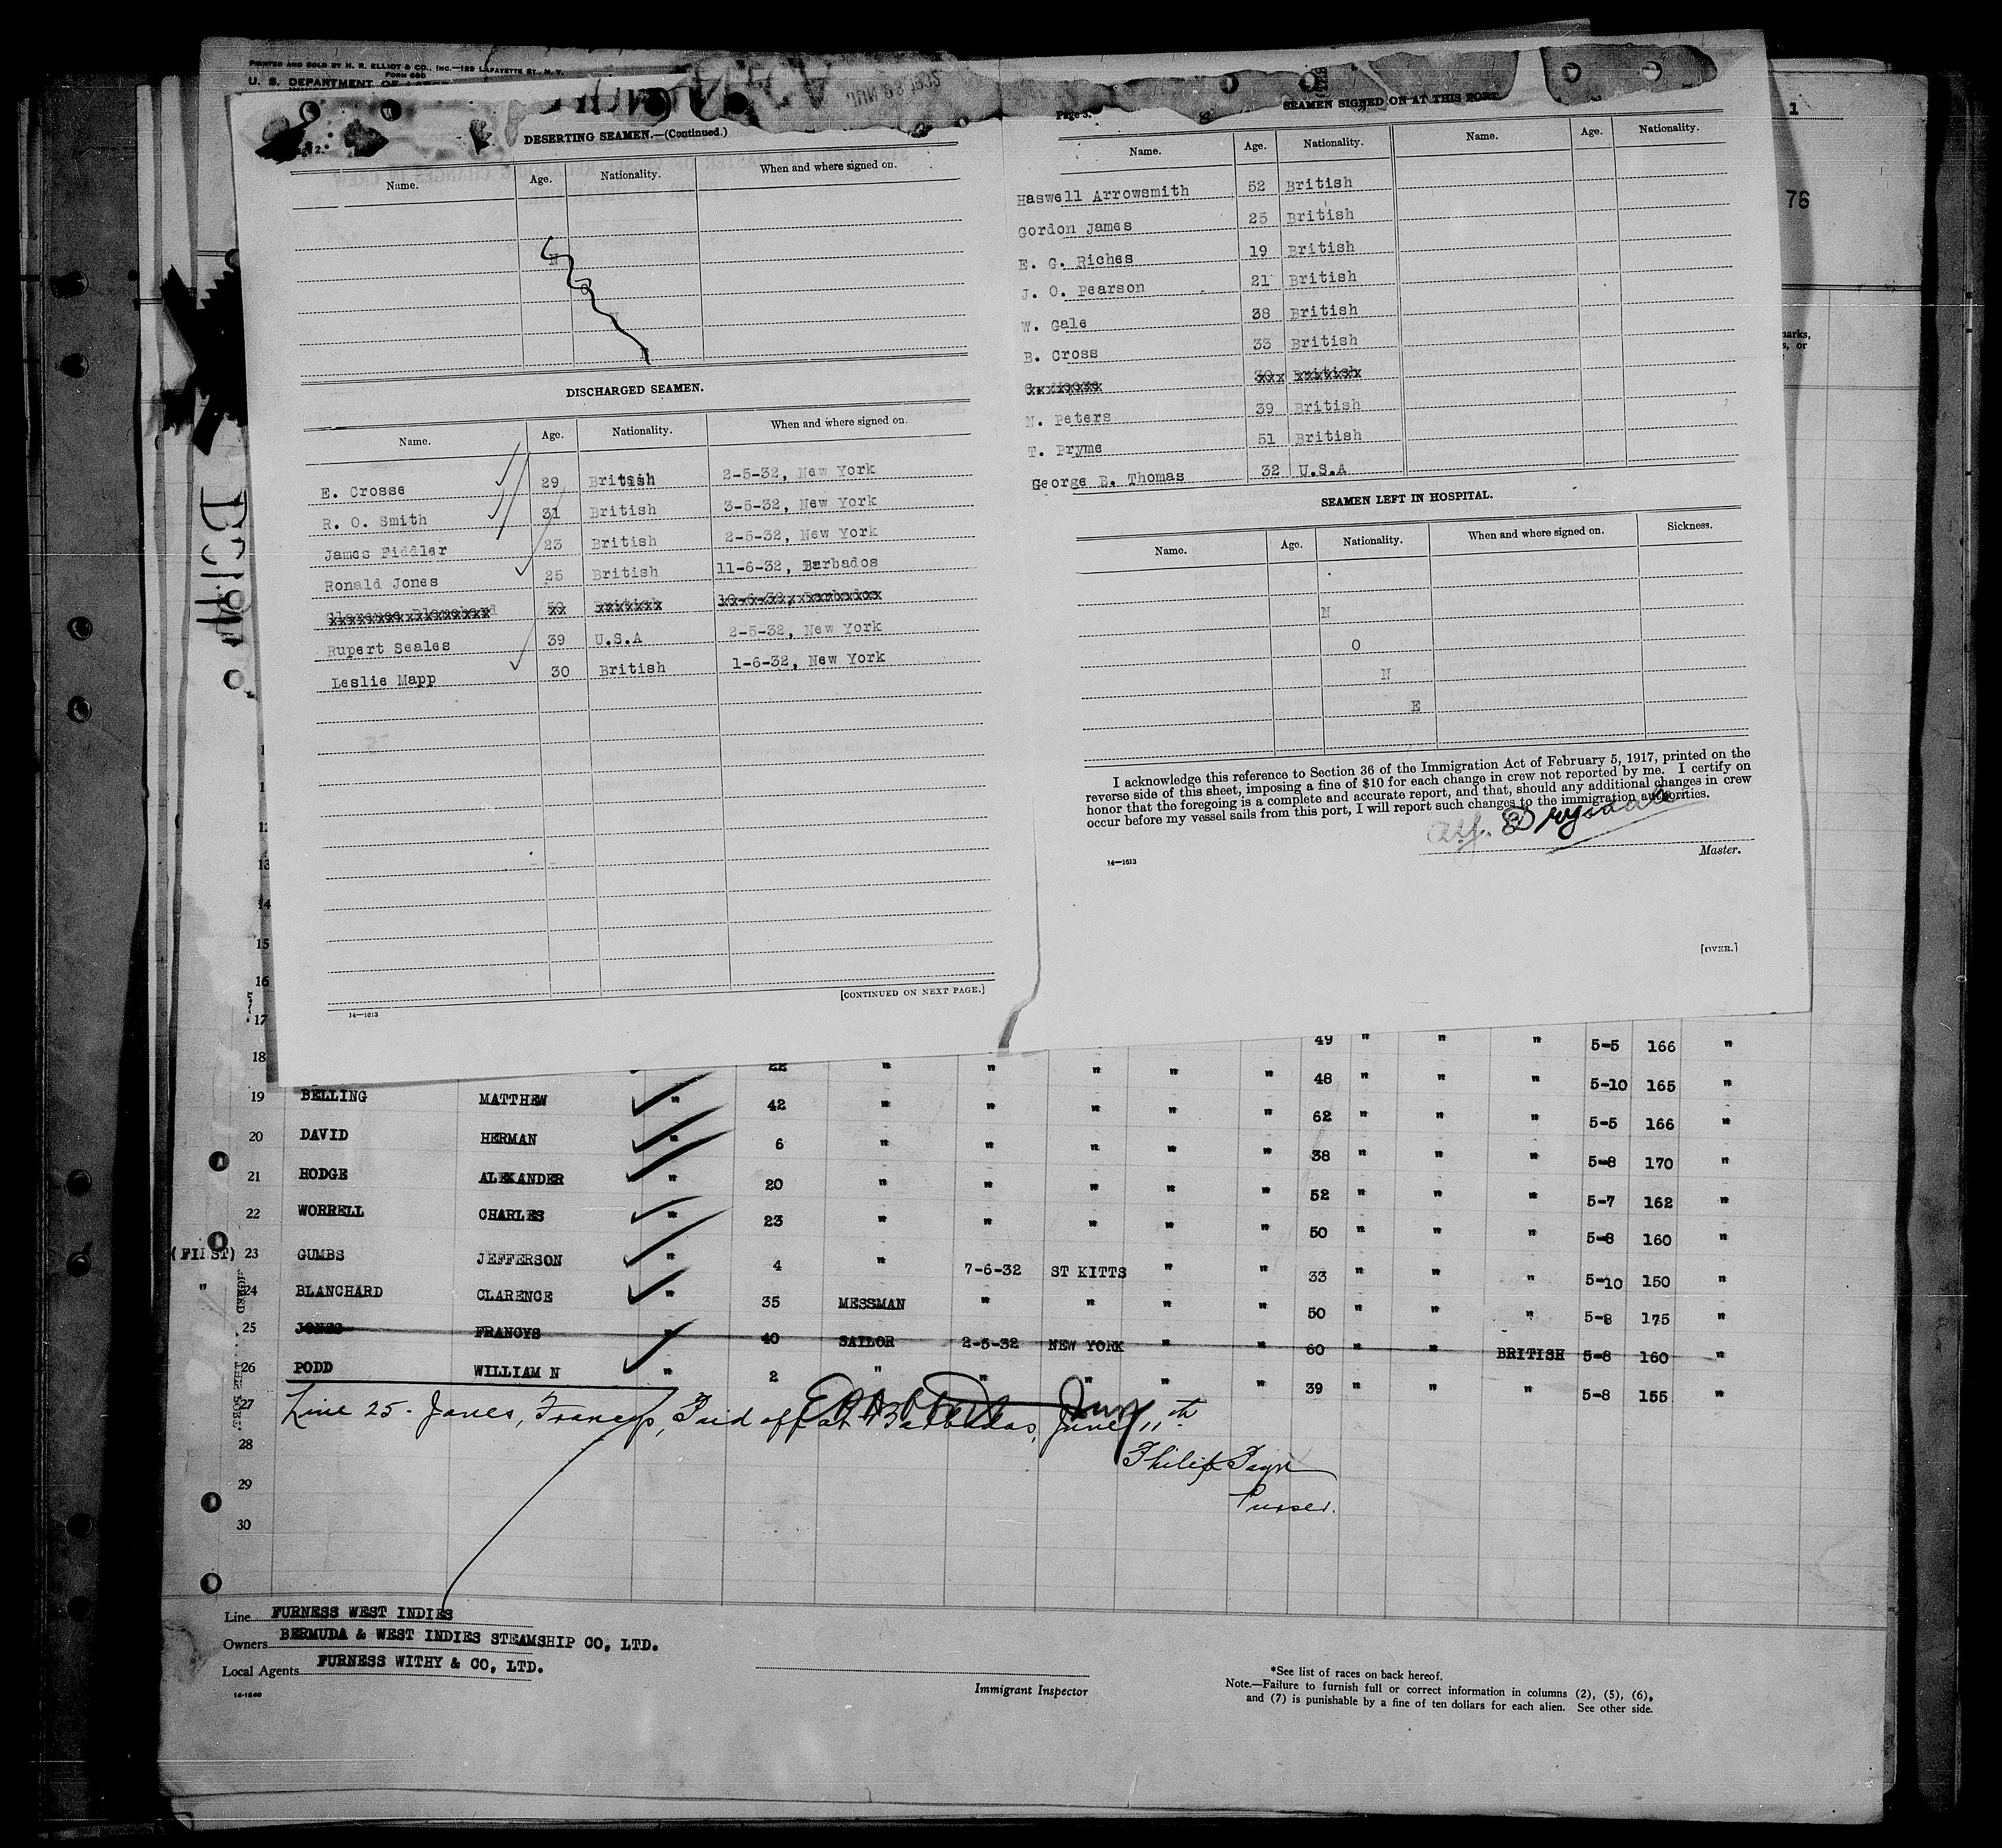 PRINTED AND SOLD BY H. R. ELLIOT & CO., INC.—129 LAFAYETTE ST., N. Y.
FORM 680
U. S. DEPARTMENT OF
1
76
DESERTING SEAMEN.—(Continued.)
Name. Age. Nationality. When and where signed on.
N
O
N
E
DISCHARGED SEAMEN.
Name. Age. Nationality. When and where signed on.
E. Crosse 29 British 2-5-32, New York
R. O. Smith 31 British 3-5-32, New York
James Fiddler 23 British 2-5-32, New York
Ronald Jones 25 British 11-6-32, Barbados
Clarence Blanchard 50 British 10-6-32, Barbados
Rupert Seales 39 U.S.A 2-5-32, New York
Leslie Mapp 30 British 1-6-32, New York
[CONTINUED ON NEXT PAGE.]
14—1613
Page 3.
SEAMEN SIGNED ON AT THIS PORT
Name. Age. Nationality. Name. Age. Nationality.
Haswell Arrowsmith 52 British
Gordon James 25 British
E. G. Riches 19 British
J. O. Pearson 21 British
W. Gale 38 British
B. Cross 33 British
30 British
N. Peters 39 British
T. Pryme 51 British
George E. Thomas 32 U.S.A
SEAMEN LEFT IN HOSPITAL.
Name. Age. Nationality. When and where signed on. Sickness.
N
O
N
E
I acknowledge this reference to Section 36 of the Immigration Act of February 5, 1917, printed on the
reverse side of this sheet, imposing a fine of $10 for each change in crew not reported by me. I certify on
honor that the foregoing is a complete and accurate report, and that, should any additional changes in crew
occur before my vessel sails from this port, I will report such changes to the immigration authorities.
Master.
14—1613
[OVER.]
13
14
15
16
17 49 " " " 5-5 166 "
18 22 " " " " " 48 " " " 5-10 165 "
19 BELLING MATTHEW " 42 " " " " " 62 " " " 5-5 166 "
20 DAVID HERMAN " 6 " " " " " 38 " " " 5-8 170 "
21 HODGE ALEXANDER " 20 " " " " " 52 " " " 5-7 162 "
22 WORRELL CHARLES " 23 " " " " " 50 " " " 5-8 160 "
(FIRST) 23 GUMBS JEFFERSON " 4 " 7-6-32 ST KITTS " " 33 " " " 5-10 150 "
" 24 BLANCHARD CLARENCE " 35 MESSMAN " " " " 50 " " " 5-8 175 "
25 JONES FRANCYS " 40 SAILOR 2-5-32 NEW YORK " " 60 " " BRITISH 5-8 160 "
26 PODD WILLIAM N " 2 " " " " " 39 " " " 5-8 155 "
27 Line 25 - Jones, Francys, Paid off at Barbados, June 11th
28 Philip
29 Purser.
30
Line FURNESS WEST INDIES
Owners BERMUDA & WEST INDIES STEAMSHIP CO, LTD.
Local Agents FURNESS WITHY & CO, LTD.
Immigrant Inspector
*See list of races on back hereof.
Note.—Failure to furnish full or correct information in columns (2), (5), (6),
and (7) is punishable by a fine of ten dollars for each alien. See other side.